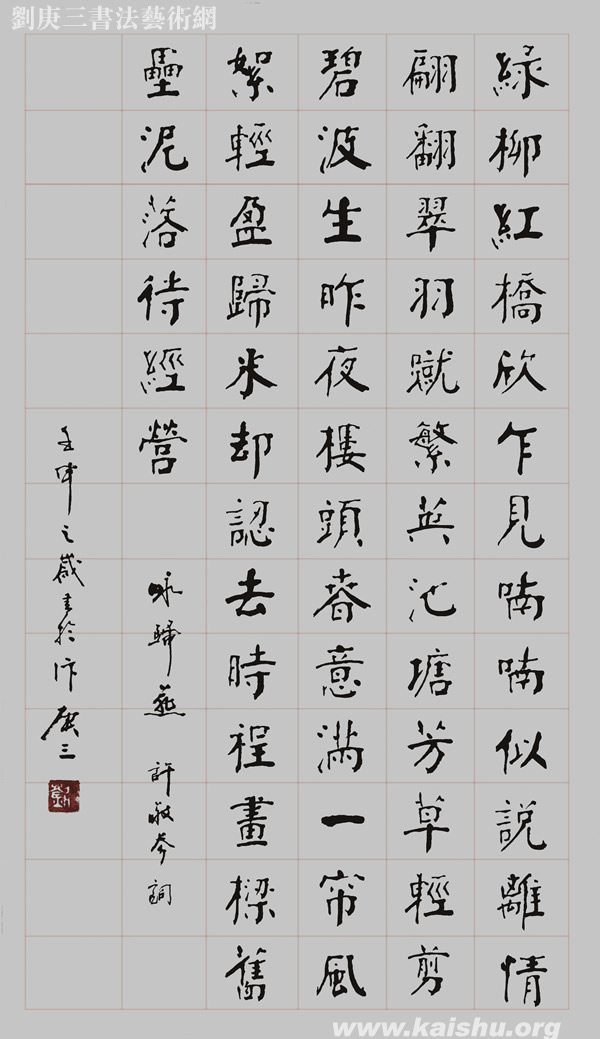 劉庚三書法藝術網
綠柳紅橋欣乍見喃喃似說離情
翩翻翠羽蹴繁英池塘芳草輕剪
碧波生昨夜樓頭春意滿一帘風
絮輕盈歸來却認去時程畫樑舊
壘泥落待經營
咏歸燕 許敬參詞
壬申之歲書於汴 庚三
劉
www.kaishu.org